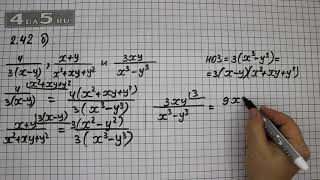 4DA5.RU
2.42 б)
4/3(x-y), x+y/x²+xy+y² и 3xy/x³-y³
НОЗ = 3(x³-y³) =
= 3(x-y)(x²+xy+y²)
4/3(x-y) (x²+xy+y² = 4(x²+xy+y²)/3(x³-y³)
x+y/x²+xy+y² (3(x-y) = 3(x²-y²)/3(x³-y³)
3xy/x³-y³ (3 = 9x